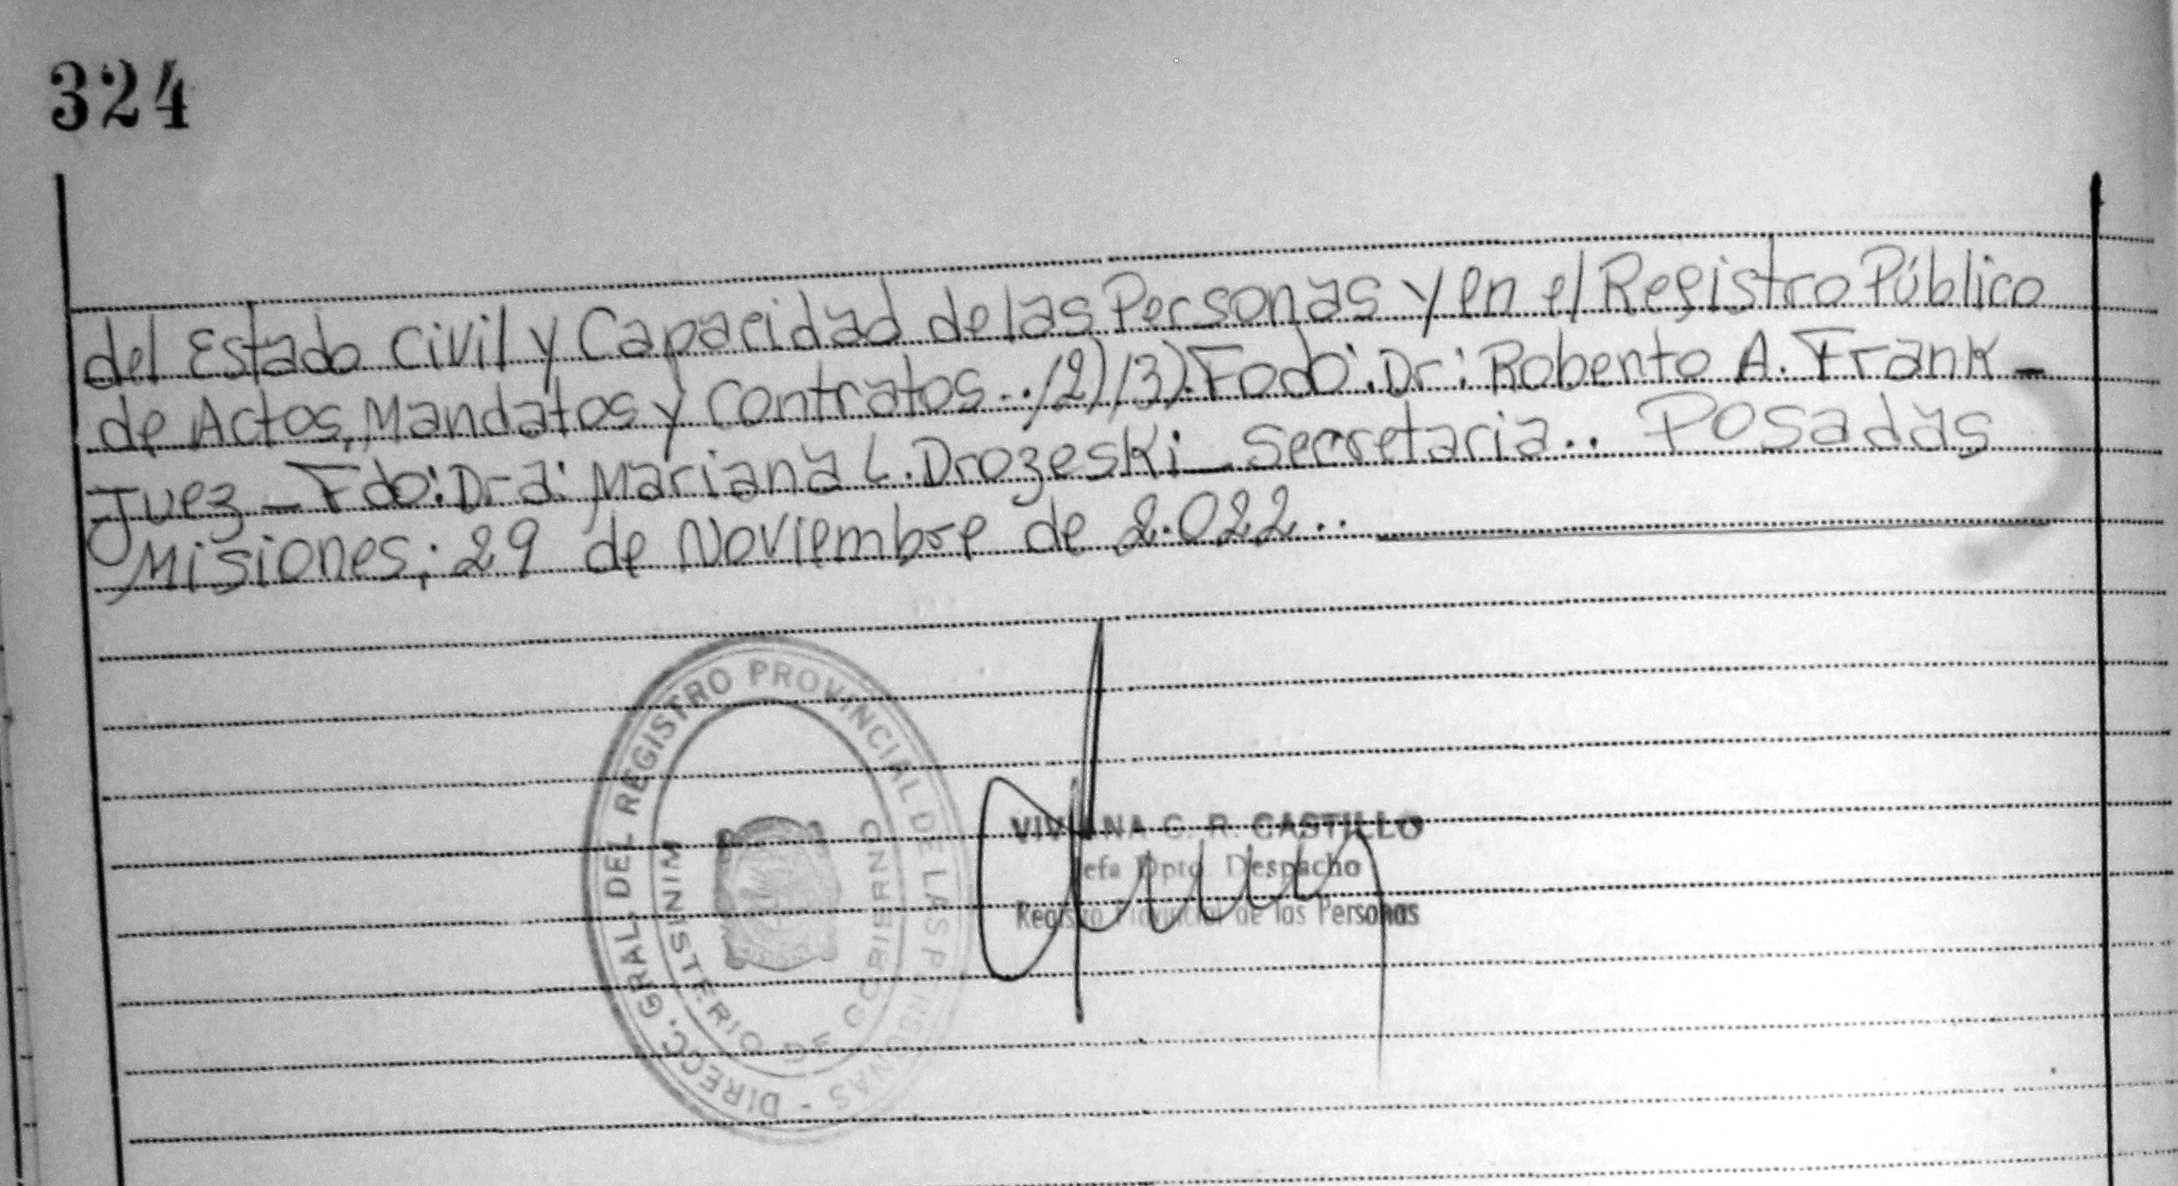 324
del Estado Civil y Capacidad de las Personas y en el Registro Público
de Actos, Mandatos y Contratos../2)/3).Fodo: Dr: Robento A. Frank -
Juez - Fdo: Dra: Mariana L. Drozeski - Secretaria.. Posadas
Misiones; 29 de Noviembre de 2.022..
DIRECC. GRAL. DEL REGISTRO PROVINCIAL DE LAS PERSONAS -
MINISTERIO DE GOBIERNO
VIVIANA C. R. CASTILLO
Jefa Dpto. Despacho
Registro Provincial de las Personas